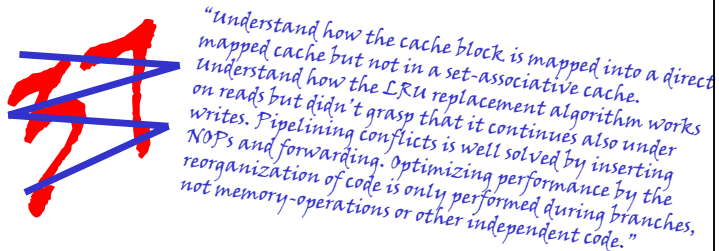 "Understand how the cache block is mapped into a direct
mapped cache but not in a set-associative cache.
Understand how the LRU replacement algorithm works
on reads but didn't grasp that it continues also under
writes. Pipelining conflicts is well solved by inserting
NOPs and forwarding. Optimizing performance by the
reorganization of code is only performed during branches,
not memory-operations or other independent code."